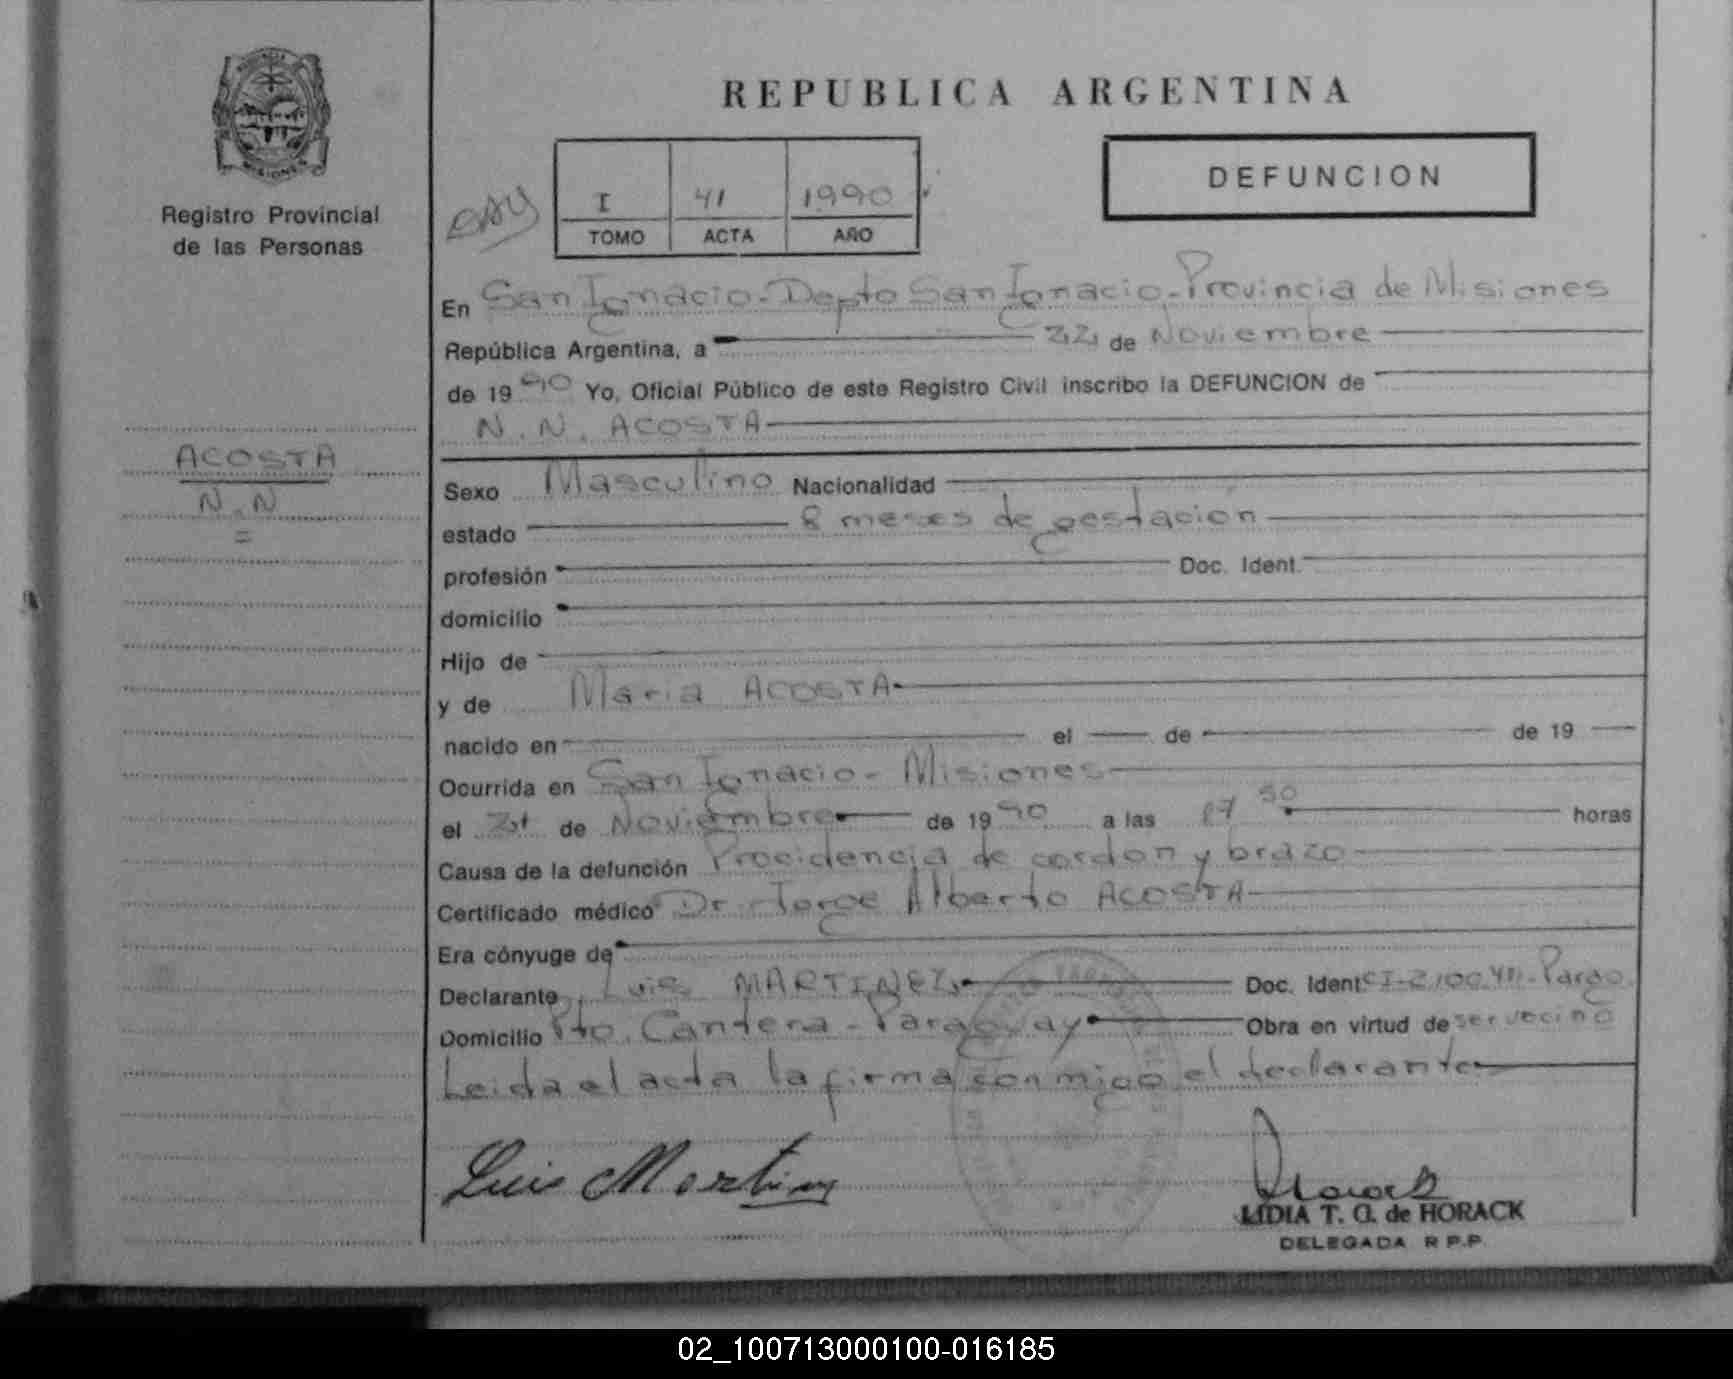 REPUBLICA ARGENTINA
Registro Provincial
de las Personas
I 41 1990
TOMO ACTA AÑO
DEFUNCION
ACOSTA
N.N
En San Ignacio - Depto San Ignacio - Provincia de Misiones
República Argentina, a 22 de Noviembre
de 1990 Yo, Oficial Público de este Registro Civil inscribo la DEFUNCION de
N. N. ACOSTA
Sexo Masculino Nacionalidad
estado 8 meses de gestacion
profesión Doc. Ident.
domicilio
Hijo de
y de Maria ACOSTA
nacido en el de de 19
Ocurrida en San Ignacio - Misiones
el 21 de Noviembre de 1990 a las 17 50 horas
Causa de la defunción Procidencia de cordon y brazo
Certificado médico Dr. Jorge Alberto ACOSTA
Era cónyuge de
Declarante Luis MARTINEZ Doc. Ident CI- Pargo.
Domicilio Pto. Cantera - Paraguay Obra en virtud de ser vecino
Leida el acta la firma conmigo el declarante
Luis Martinez
LIDIA T. G. de HORACK
DELEGADA R.P.P.
02_100713000100-016185